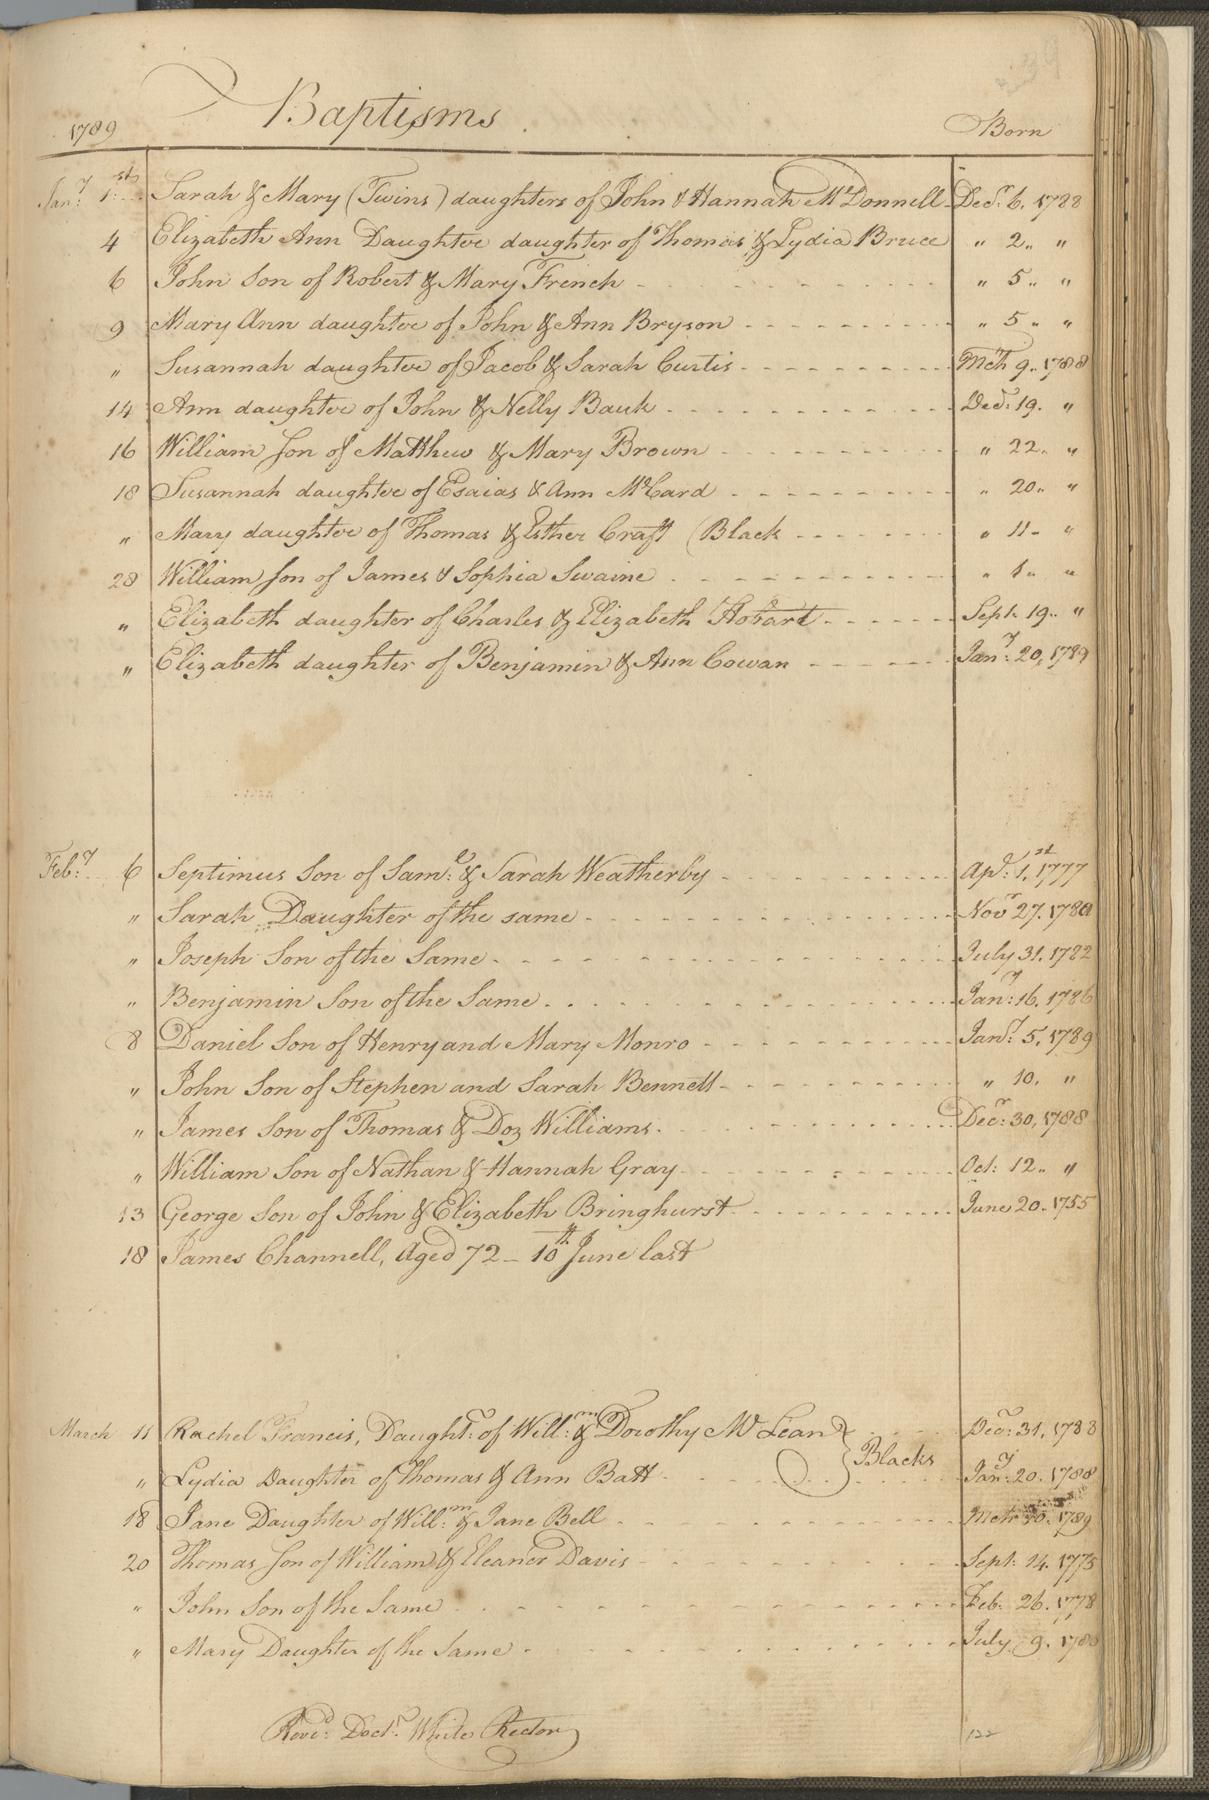 1789 Baptisms Born
Jan:y 1:st Sarah & Mary (Twins) daughters of John & Hannah McDonnell Dec:r 6. 1788
4 Elizabeth Ann Daughter daughter of Thomas & Lydia Bruce " 2 " "
6 John Son of Robert & Mary French " 5 " "
9 Mary Ann daughter of John & Ann Bryson " 5 " "
" Susannah daughter of Jacob & Sarah Curtis Mch 9. 1788
14 Ann daughter of John & Nelly Bauk Dec:r 19. "
16 William Son of Matthew & Mary Brown " 22 " "
18 Susannah daughter of Esaias & Ann McCard " 20 " "
" Mary daughter of Thomas & Esther Craft (Black " 11 "
28 William Son of James & Sophia Swaine " 1 " "
" Elizabeth daughter of Charles & Elizabeth Hobart Sept. 19 "
" Elizabeth daughter of Benjamin & Ann Cowan Jan:y 20, 1789
Feb:y 6 Septimus Son of Sam:l & Sarah Weatherby Ap:l 1.st 1777
" Sarah Daughter of the same Nov.r 27. 1780
" Joseph Son of the Same July 31. 1782
" Benjamin Son of the Same Jan:y 16. 1786
8 Daniel Son of Henry and Mary Monro Jan:y 5. 1789
" John Son of Stephen and Sarah Bennett " 10. "
" James Son of Thomas & Doz Williams Dec:r 30, 1788
" William Son of Nathan & Hannah Gray Oct: 12 "
13 George Son of John & Elizabeth Bringhurst June 20. 1755
18 James Channell, Aged 72 – 10th June last
March 11 Rachel Francis, Daught:r of Will:m & Dorothy McLean Dec:r 31. 1788
Blacks
" Lydia Daughter of Thomas & Ann Batt Jan:y 20. 1788
18 Jane Daughter of Will:m & Jane Bell Mch 10. 1789
20 Thomas Son of William & Eleaner Davis Sept: 14. 1775
" John Son of the Same Feb. 26. 1778
" Mary Daughter of the Same July 9.
Rev:d Doct:r White Rector
122